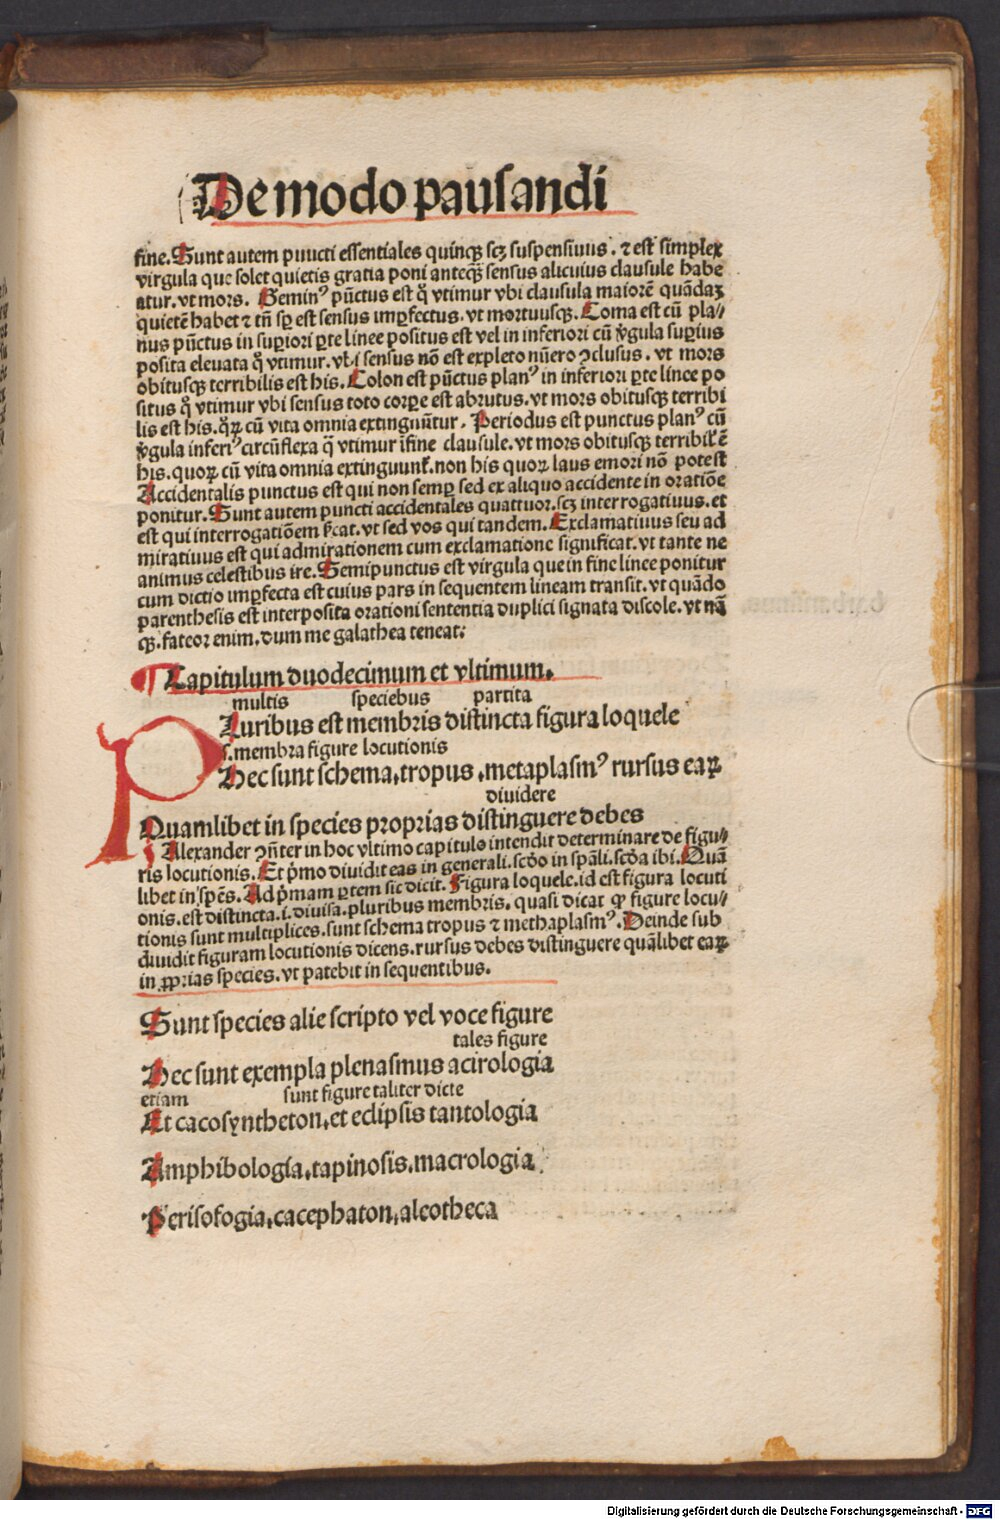 De modo pausandi
fine. Sunt autem puncti essentiales quinqꝫ scꝫ suspensiuus. ⁊ est simplex
virgula que solet quietis gratia poni anteq̄ꝫ sensus alicuius clausule habe
atur. vt mors. Geminꝰ pūctus est q̊ vtimur vbi clausula maiorē quādaꝫ
quietē habet ⁊ tn̄ sꝑ est sensus imꝑfectus. vt mortuusqꝫ. Coma est cū pla/
nus pūctus in suꝑiori ꝑte linee positus est vel in inferiori cū v̓gula suꝑius
posita eleuata q̊ vtimur. vbi sensus nō est expleto nūero ꝯclusus. vt mors
obitusqꝫ terribilis est his. Colon est pūctus planꝰ in inferiori ꝑte linee po
situs q̊ vtimur vbi sensus toto corꝑe est abrutus. vt mors obitusqꝫ terribi
lis est his. qꝛ cū vita omnia extinguūtur. Periodus est punctus planꝰ cū
v̓gula inferiꝰ circūflexa q̄ vtimur ī fine clausule. vt mors obitusqꝫ terribil' ē
his. quoꝝ cū vita omnia extinguunt᷑. non his quoꝝ laus emori nō potest
Accidentalis punctus est qui non semꝑ sed ex aliquo accidente in oratiōe
ponitur. Sunt autem puncti accidentales quattuor. scꝫ interrogatiuus. et
est qui interrogatiōem sīcat. vt sed vos qui tandem. Exclamatiuus seu ad
miratiuus est qui admirationem cum exclamatione significat. vt tante ne
animus celestibus ire. Semipunctus est virgula que in fine linee ponitur
cum dictio imꝑfecta est cuius pars in sequentem lineam transit. vt quādo
parenthesis est interposita orationi sententia duplici signata discole. vt nāꝫ
qꝫ. fateor enim. dum me galathea teneat:
¶ Capitulum duodecimum et vltimum.
multis speciebus partita
Pluribus est membris distincta figura loquele
s. membra figure locutionis
Hec sunt schema, tropus, metaplasmꝰ rursus eaꝝ
diuidere
Quamlibet in species proprias distinguere debes
Alexander ꝯn̄ter in hoc vltimo capitulo intendit determinare de figu/
ris locutionis. Et p̓mo diuidit eas in generali. scd̄o in spāli. scd̄a ibi. Quā
libet in spēs. Ad p̓mam ꝑtem sic dicit. Figura loquele. id est figura locuti
onis. est distincta. i. diuisa. pluribus membris. quasi dicat ꝙ figure locu/
tionis sunt multiplices. sunt schema tropus ⁊ methaplasmꝰ. Deinde sub
diuidit figuram locutionis dicens. rursus debes distinguere quālibet eaꝝ
in ꝓprias species. vt patebit in sequentibus.
Sunt species alie scripto vel voce figure
tales figure
Hec sunt exempla plenasmus acirologia
etiam sunt figure taliter dicte
Et cacosyntheton, et eclipsis tantologia
Amphibologia, tapinosis, macrologia
Perisofogia, cacephaton, aleotheca
Digitalisierung gefördert durch die Deutsche Forschungsgemeinschaft - DFG